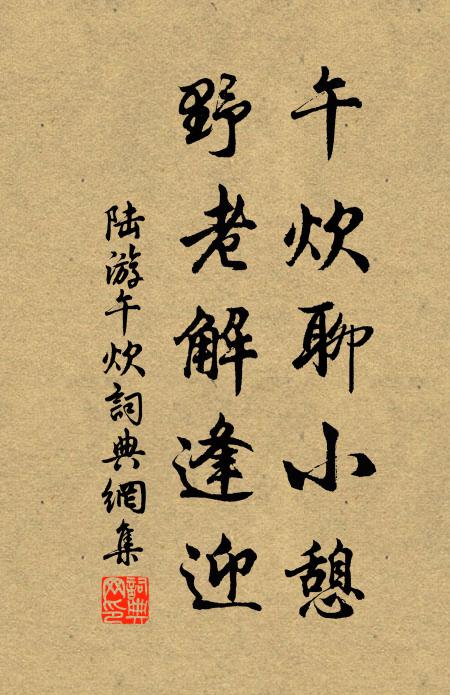 午炊聊小憩
野老解逢迎
陆游午炊詞典網集
詞典网印